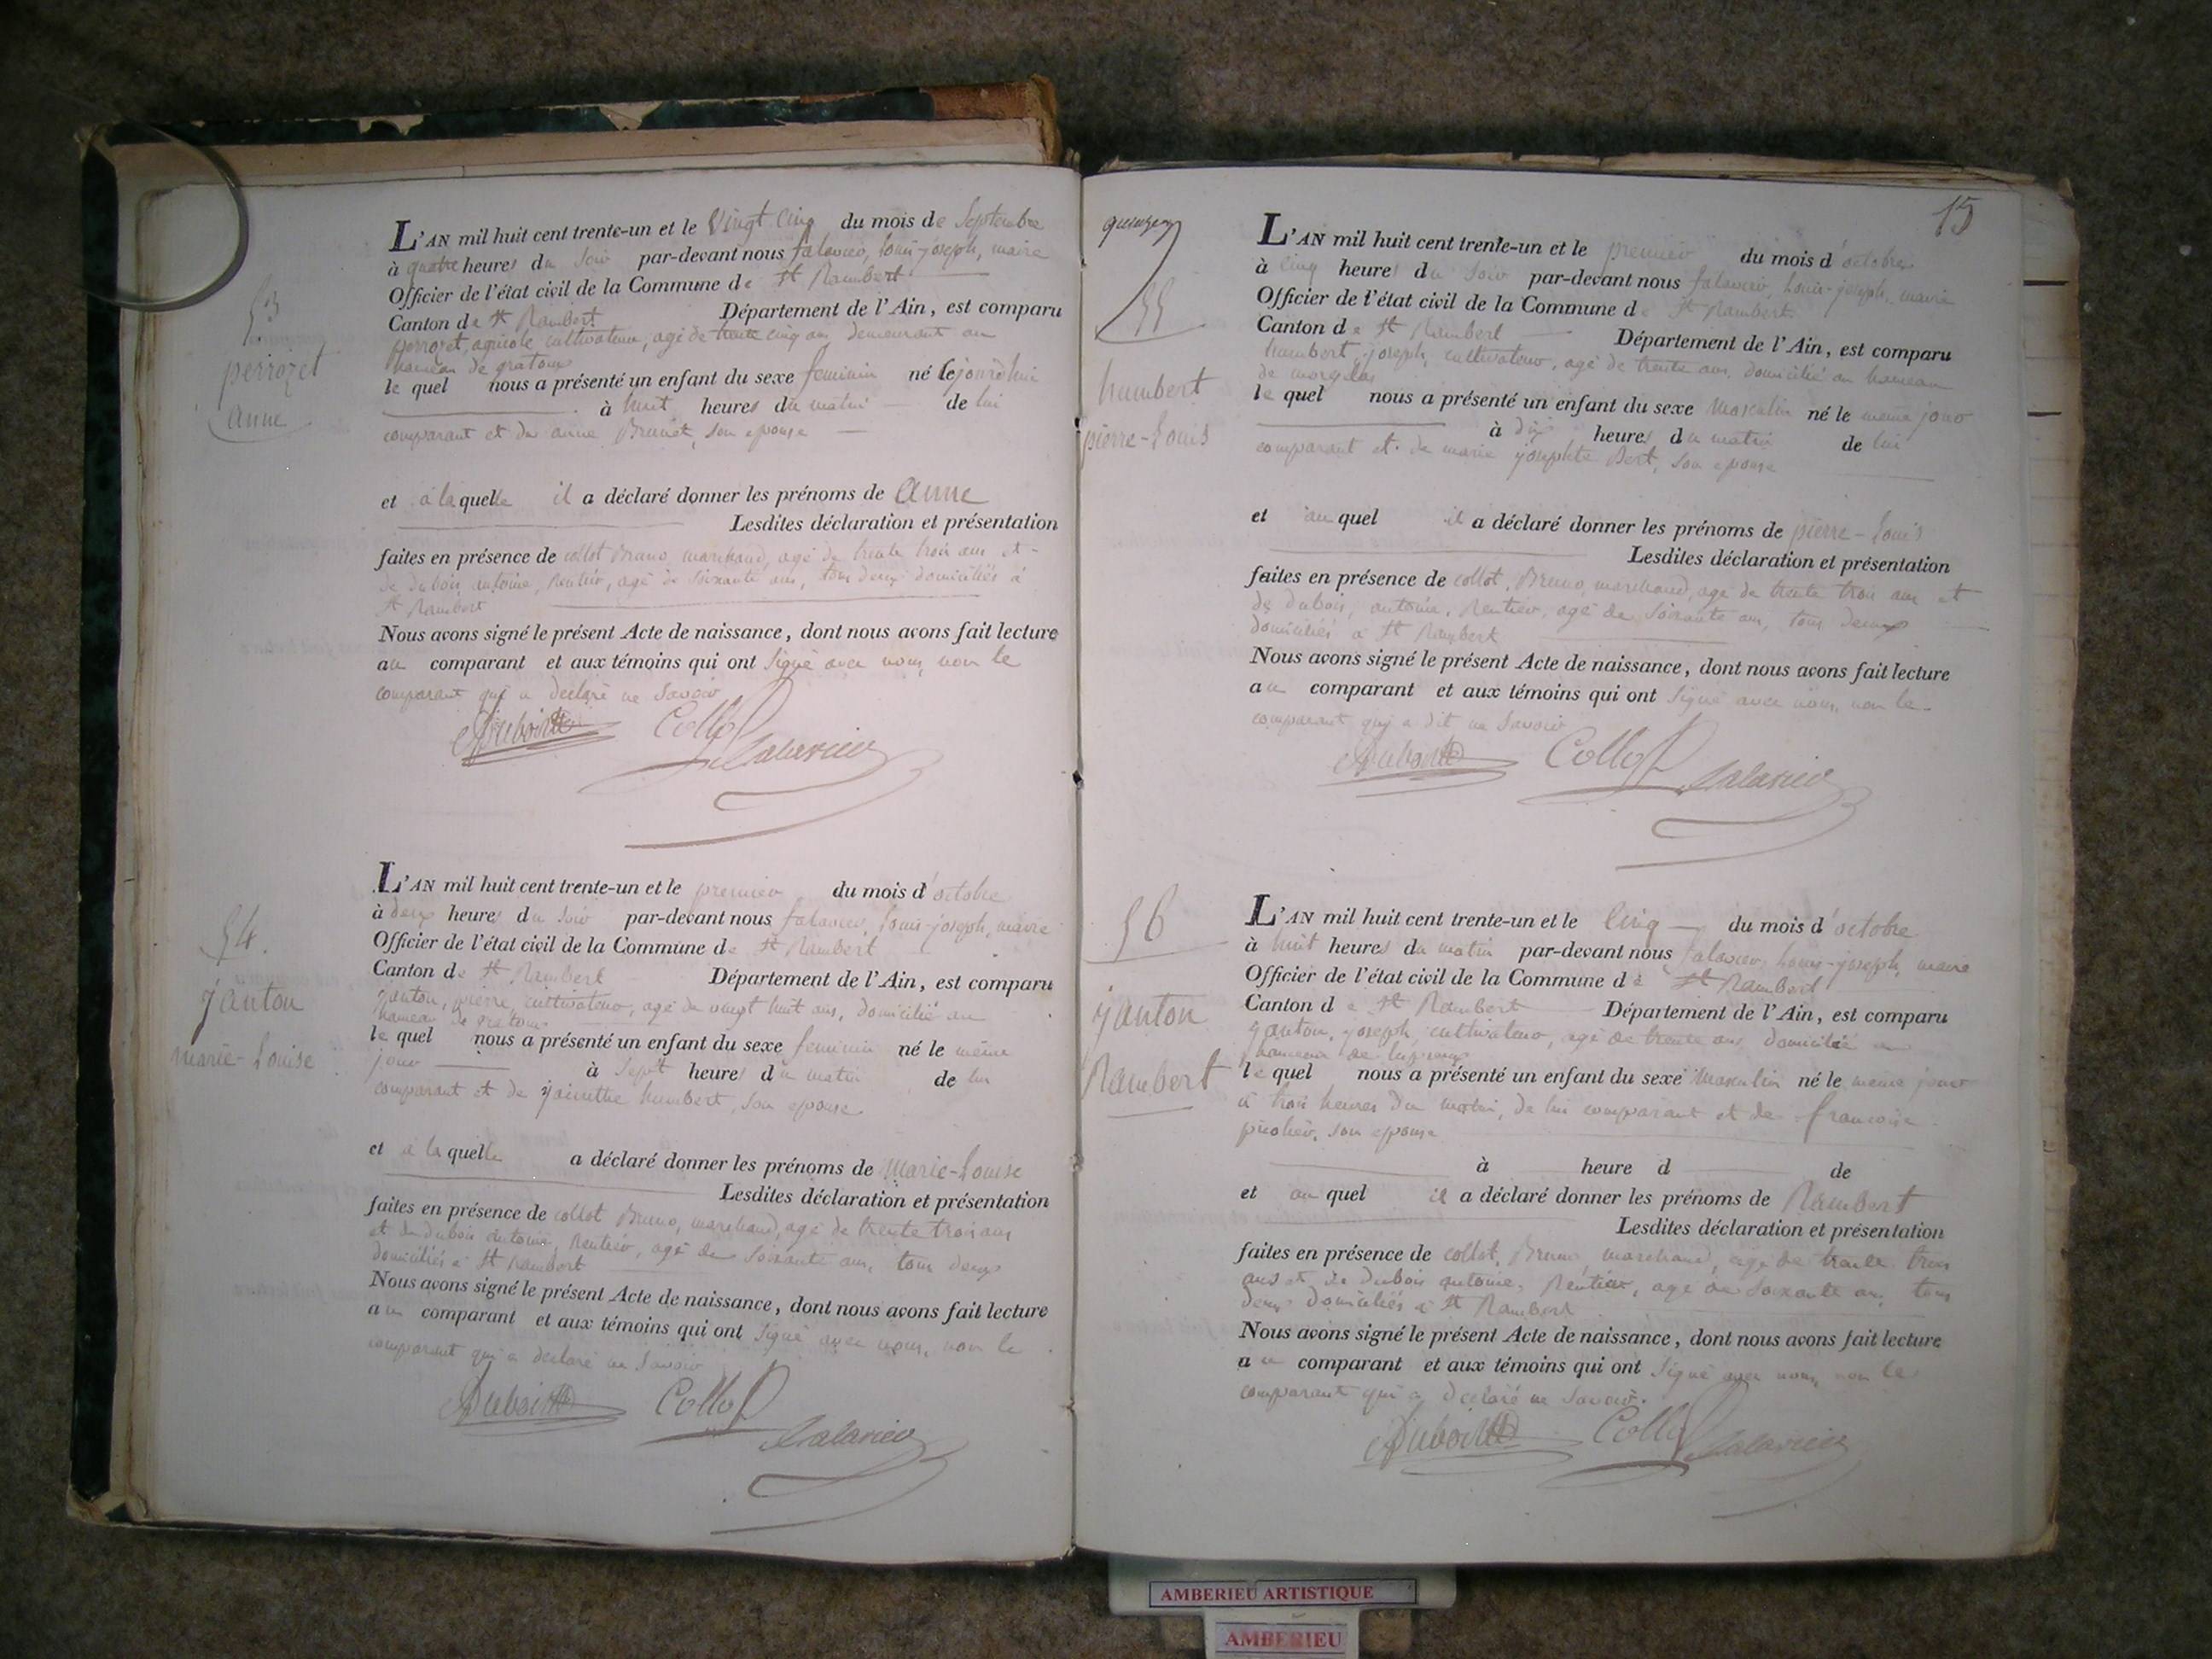 53
perrozet
anne
L'AN mil huit cent trente-un et le Vingt cinq du mois de Septembre
à quatre heures du soir par-devant nous falavier, louis-joseph, maire
Officier de l'état civil de la Commune de St Rambert
Canton de St Rambert Département de l'Ain, est comparu
perrozet, agricole cultivateur, agé de trente cinq ans demeurant au
hameau de gratoux
le quel nous a présenté un enfant du sexe feminin né le jourd'hui
à huit heures du matin de lui
comparant et de anne Brunet, son epouse
et à la quelle il a déclaré donner les prénoms de anne
Lesdites déclaration et présentation
faites en présence de collot Bruno marchand, agé de trente trois ans et
de dubois antoine, Rentier, agé de Soixante ans, tous deux domiciliés à
St Rambert
Nous avons signé le présent Acte de naissance, dont nous avons fait lecture
au comparant et aux témoins qui ont signé avec nous, non le
comparant qui a declaré ne savoir
Dubois Collot
falavier
54.
janton
marie-Louise
L'AN mil huit cent trente-un et le premier du mois d'octobre
à deux heures du soir par-devant nous falavier, louis-joseph, maire
Officier de l'état civil de la Commune de St Rambert
Canton de St Rambert Département de l'Ain, est comparu
janton, pierre, cultivateur, agé de vingt huit ans, domicilié au
hameau de gratoux
le quel nous a présenté un enfant du sexe feminin né le même
jour à Sept heures du matin de lui
comparant et de jacinthe humbert, son epouse
et à la quelle a déclaré donner les prénoms de Marie-Louise
Lesdites déclaration et présentation
faites en présence de collot Bruno, marchand, agé de trente trois ans
et de dubois antoine, Rentier, agé de Soixante ans, tous deux
domiciliés à St Rambert
Nous avons signé le présent Acte de naissance, dont nous avons fait lecture
au comparant et aux témoins qui ont signé avec nous, non le
comparant qui a declaré ne savoir
Dubois Collot
falavier
15
55
humbert
pierre-Louis
L'AN mil huit cent trente-un et le premier du mois d'octobre
à cinq heures du soir par-devant nous falavier, louis-joseph, maire
Officier de l'état civil de la Commune de St Rambert
Canton de St Rambert Département de l'Ain, est comparu
humbert, joseph, cultivateur, agé de trente ans, domicilié au hameau
de
le quel nous a présenté un enfant du sexe Masculin né le même jour
à dix heures du matin de lui
comparant et de marie josephte Bert, son epouse
et au quel il a déclaré donner les prénoms de pierre-Louis
Lesdites déclaration et présentation
faites en présence de collot, Bruno, marchand, agé de trente trois ans et
de dubois, antoine, Rentier, agé de Soixante ans, tous deux
domiciliés à St Rambert
Nous avons signé le présent Acte de naissance, dont nous avons fait lecture
au comparant et aux témoins qui ont signé avec nous, non le
comparant qui a dit ne savoir
Dubois Collot
falavier
56
janton
Rambert
L'AN mil huit cent trente-un et le cinq du mois d'octobre
à huit heures du matin par-devant nous falavier, louis-joseph, maire
Officier de l'état civil de la Commune de St Rambert
Canton de St Rambert Département de l'Ain, est comparu
janton, joseph, cultivateur, agé de trente ans domicilié au
hameau de
le quel nous a présenté un enfant du sexe Masculin né le même jour
à trois heures du matin, de lui comparant et de francoise
son epouse
à heure d de
et au quel il a déclaré donner les prénoms de Rambert
Lesdites déclaration et présentation
faites en présence de collot, Bruno, marchand, agé de trente trois
ans et de dubois antoine, Rentier, agé de Soixante ans tous
deux domiciliés à St Rambert
Nous avons signé le présent Acte de naissance, dont nous avons fait lecture
au comparant et aux témoins qui ont signé avec nous, non le
comparant qui a declaré ne savoir.
Dubois Collot
falavier
AMBERIEU ARTISTIQUE
AMBERIEU